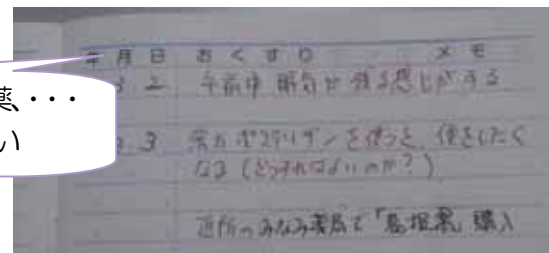 薬、・・・
い
年月日 おくすり メモ
3 2 午前中 眠気が残る感じがする
3 3 ポステリザンを使うと、便をしたく
なる(どうすればよいのか?)
近所のみなみ薬局で「葛根湯」購入